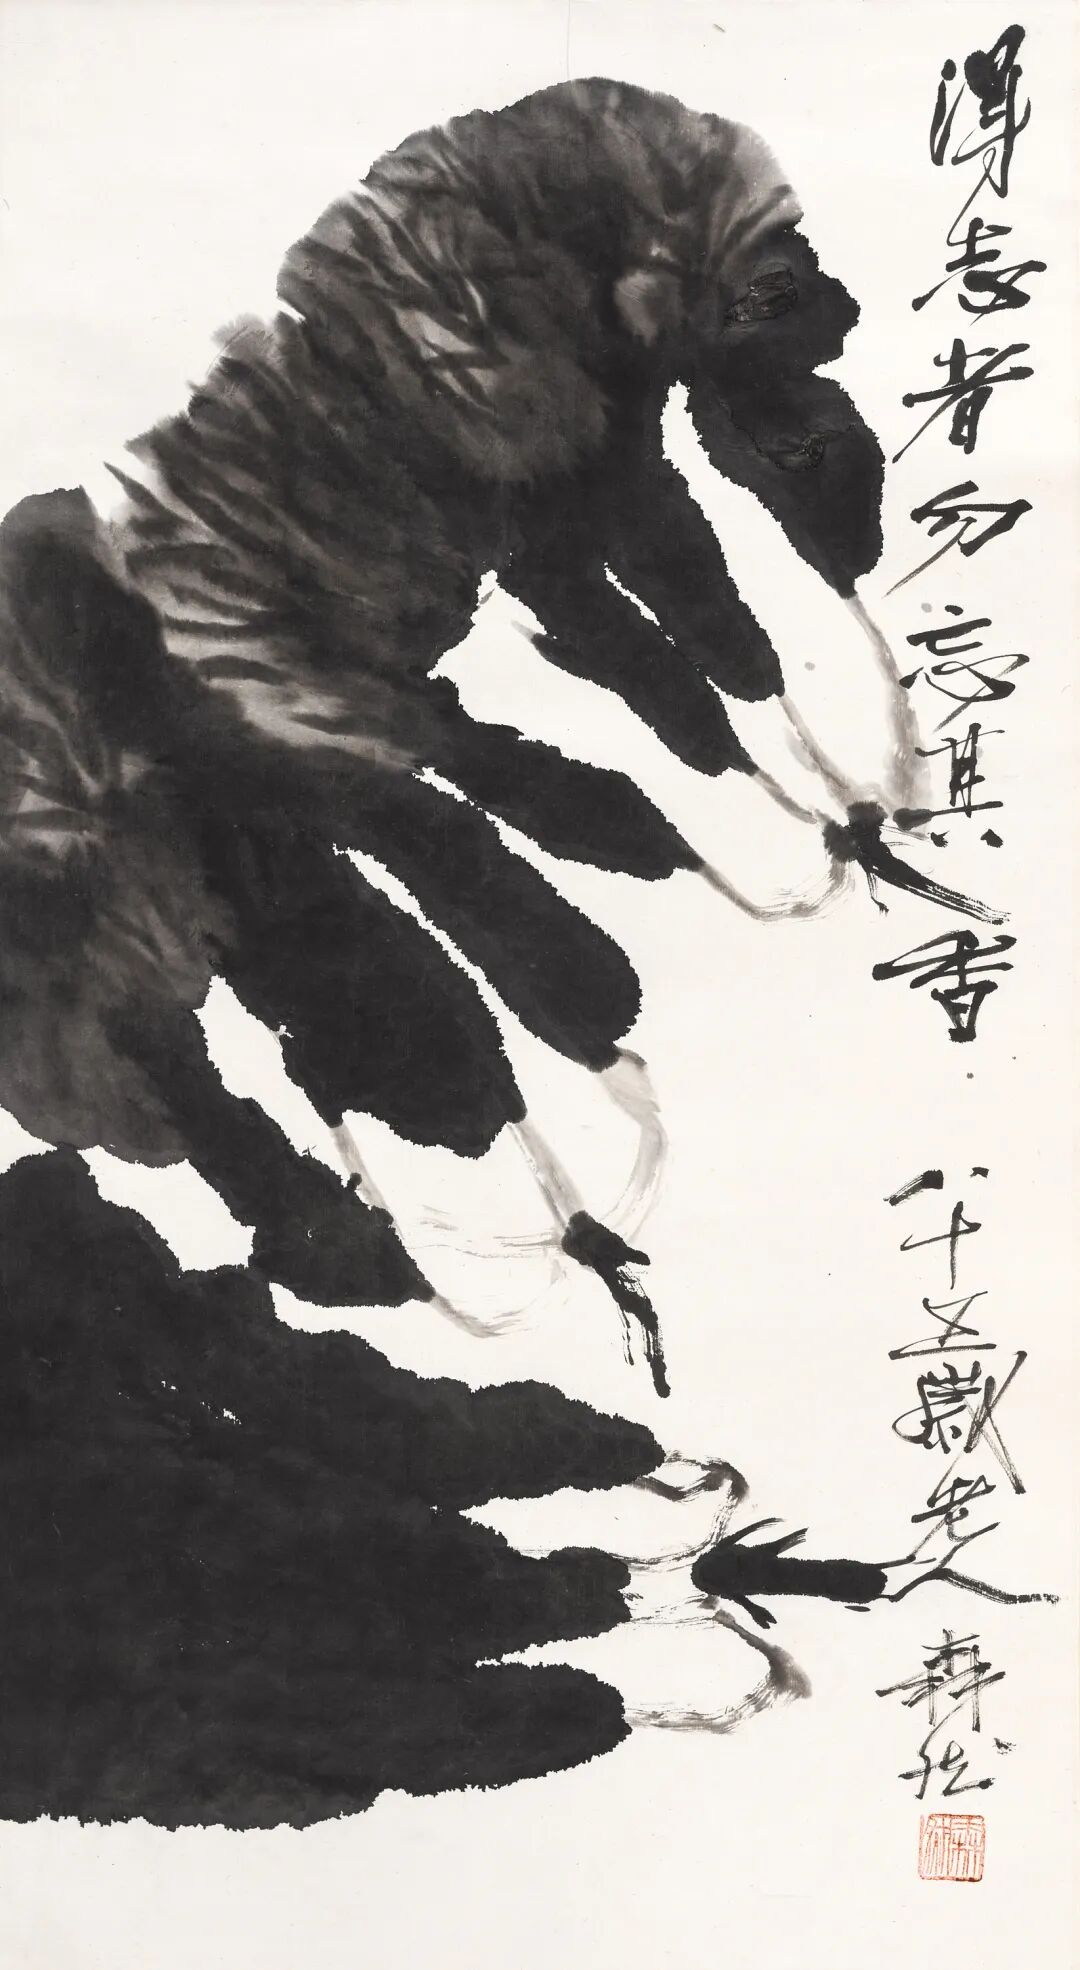 得志者勿忘其香 八十五歲老人 森然